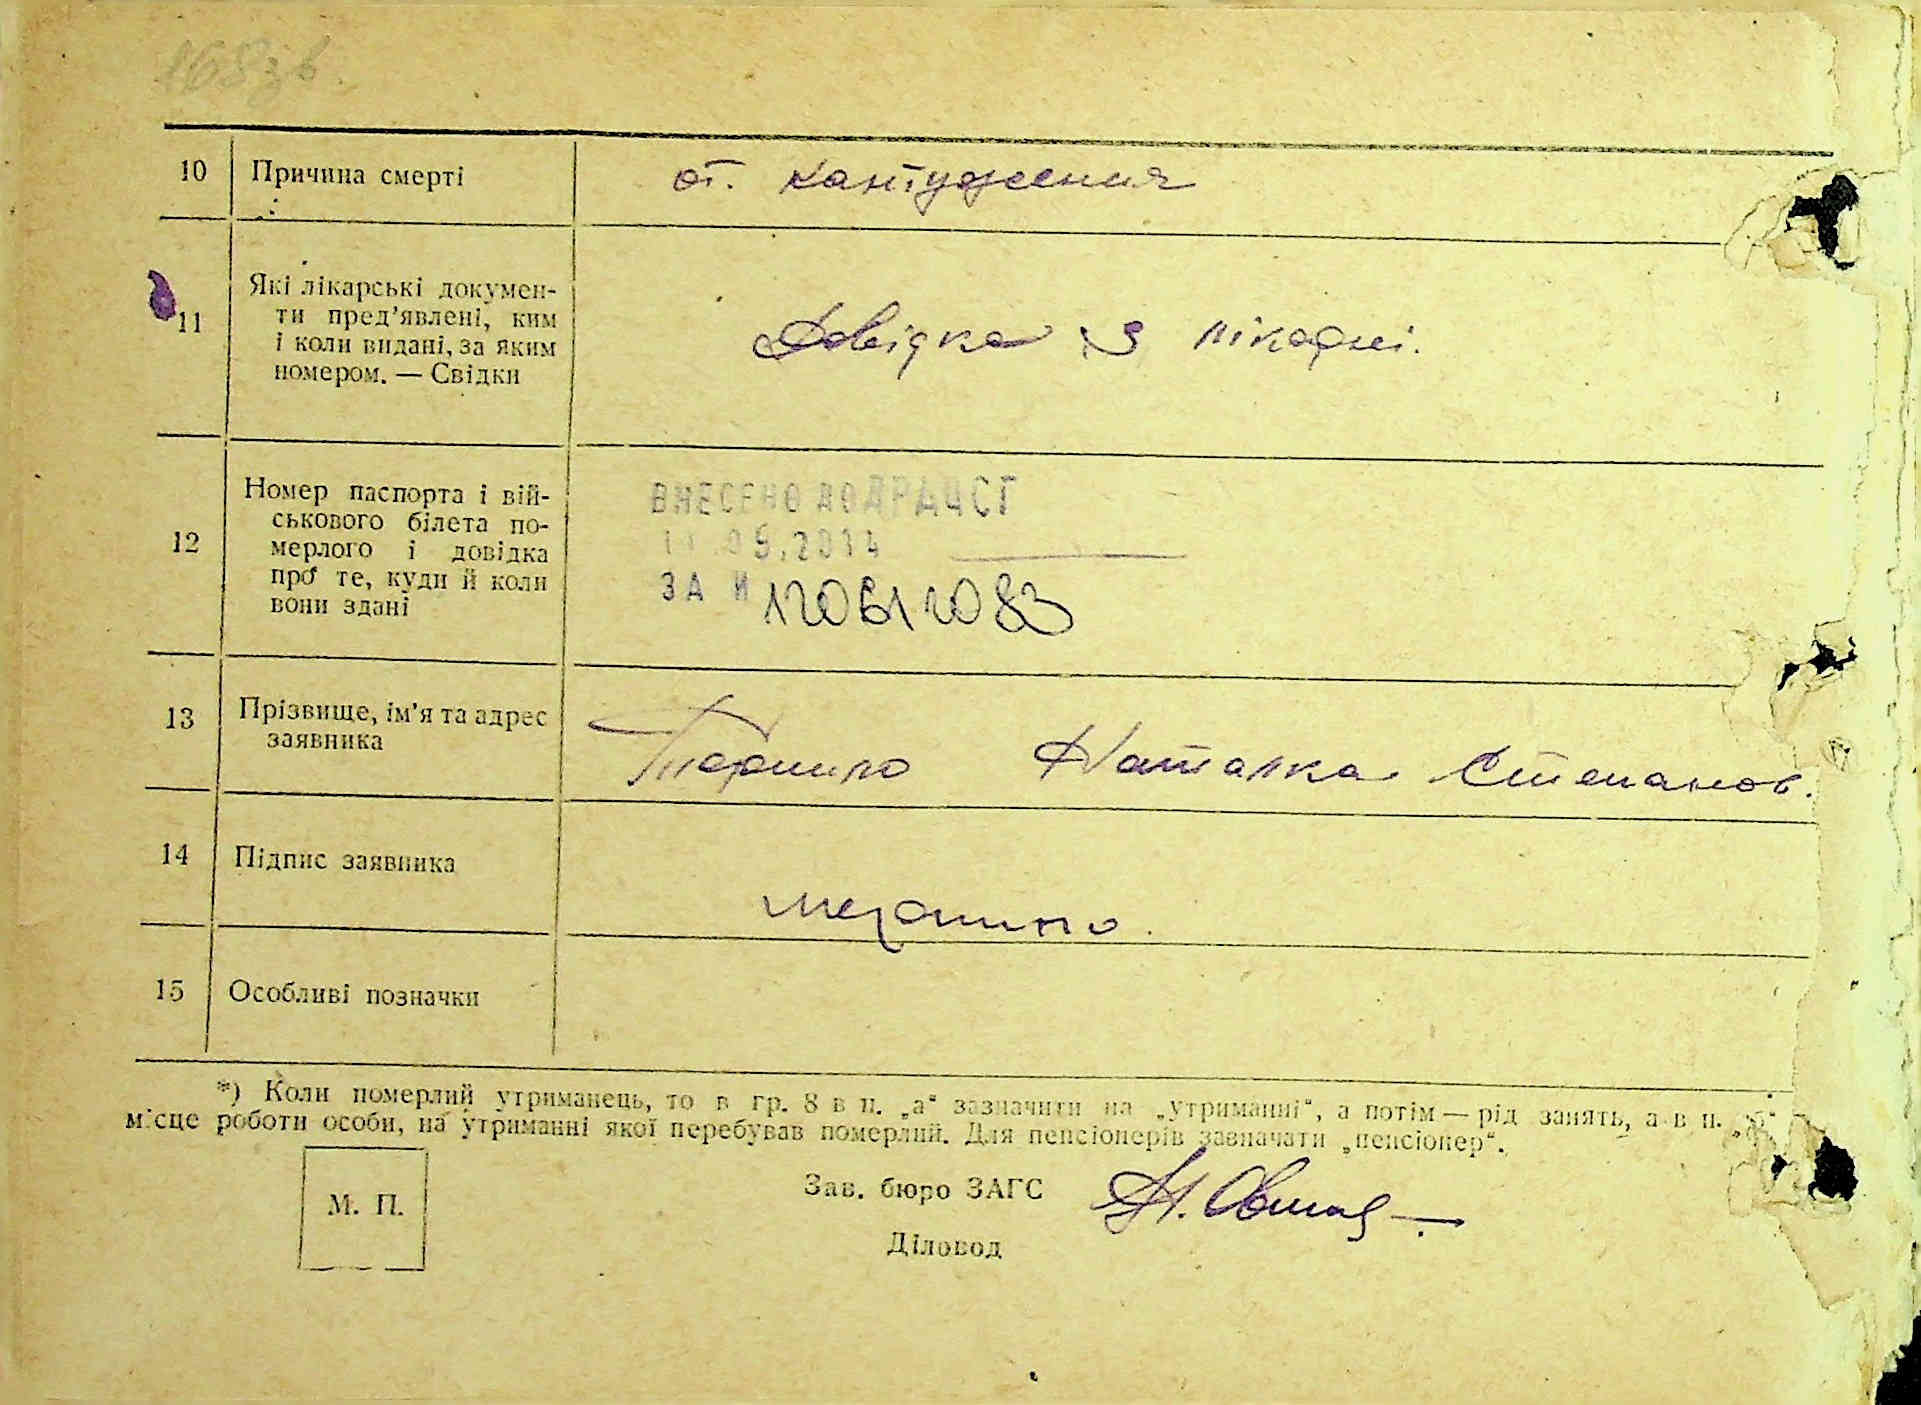 168зв.
10 Причина смерті от. кантужения
11 Які лікарські докумен-
ти пред’явлені, ким
і коли видані, за яким
номером. — Свідки
Довідка з лікарні.
12 Номер паспорта і вій-
ськового білета по-
мерлого і довідка
про те, куди й коли
вони здані
ВНЕСЕНО ДО ДРАЦСГ
.09.2014
ЗА № 12061083
13 Прізвище, ім’я та адрес
заявника
Наталка Степанов.
14 Підпис заявника
15 Особливі позначки
*) Коли померлий утриманець, то в гр. 8 в п. „а“ зазначити на „утриманні“, а потім — рід занять, а в п. „б“
місце роботи особи, на утриманні якої перебував померлий. Для пенсіонерів зазначати „пенсіонер“.
М. П.
Зав. бюро ЗАГС
Діловод